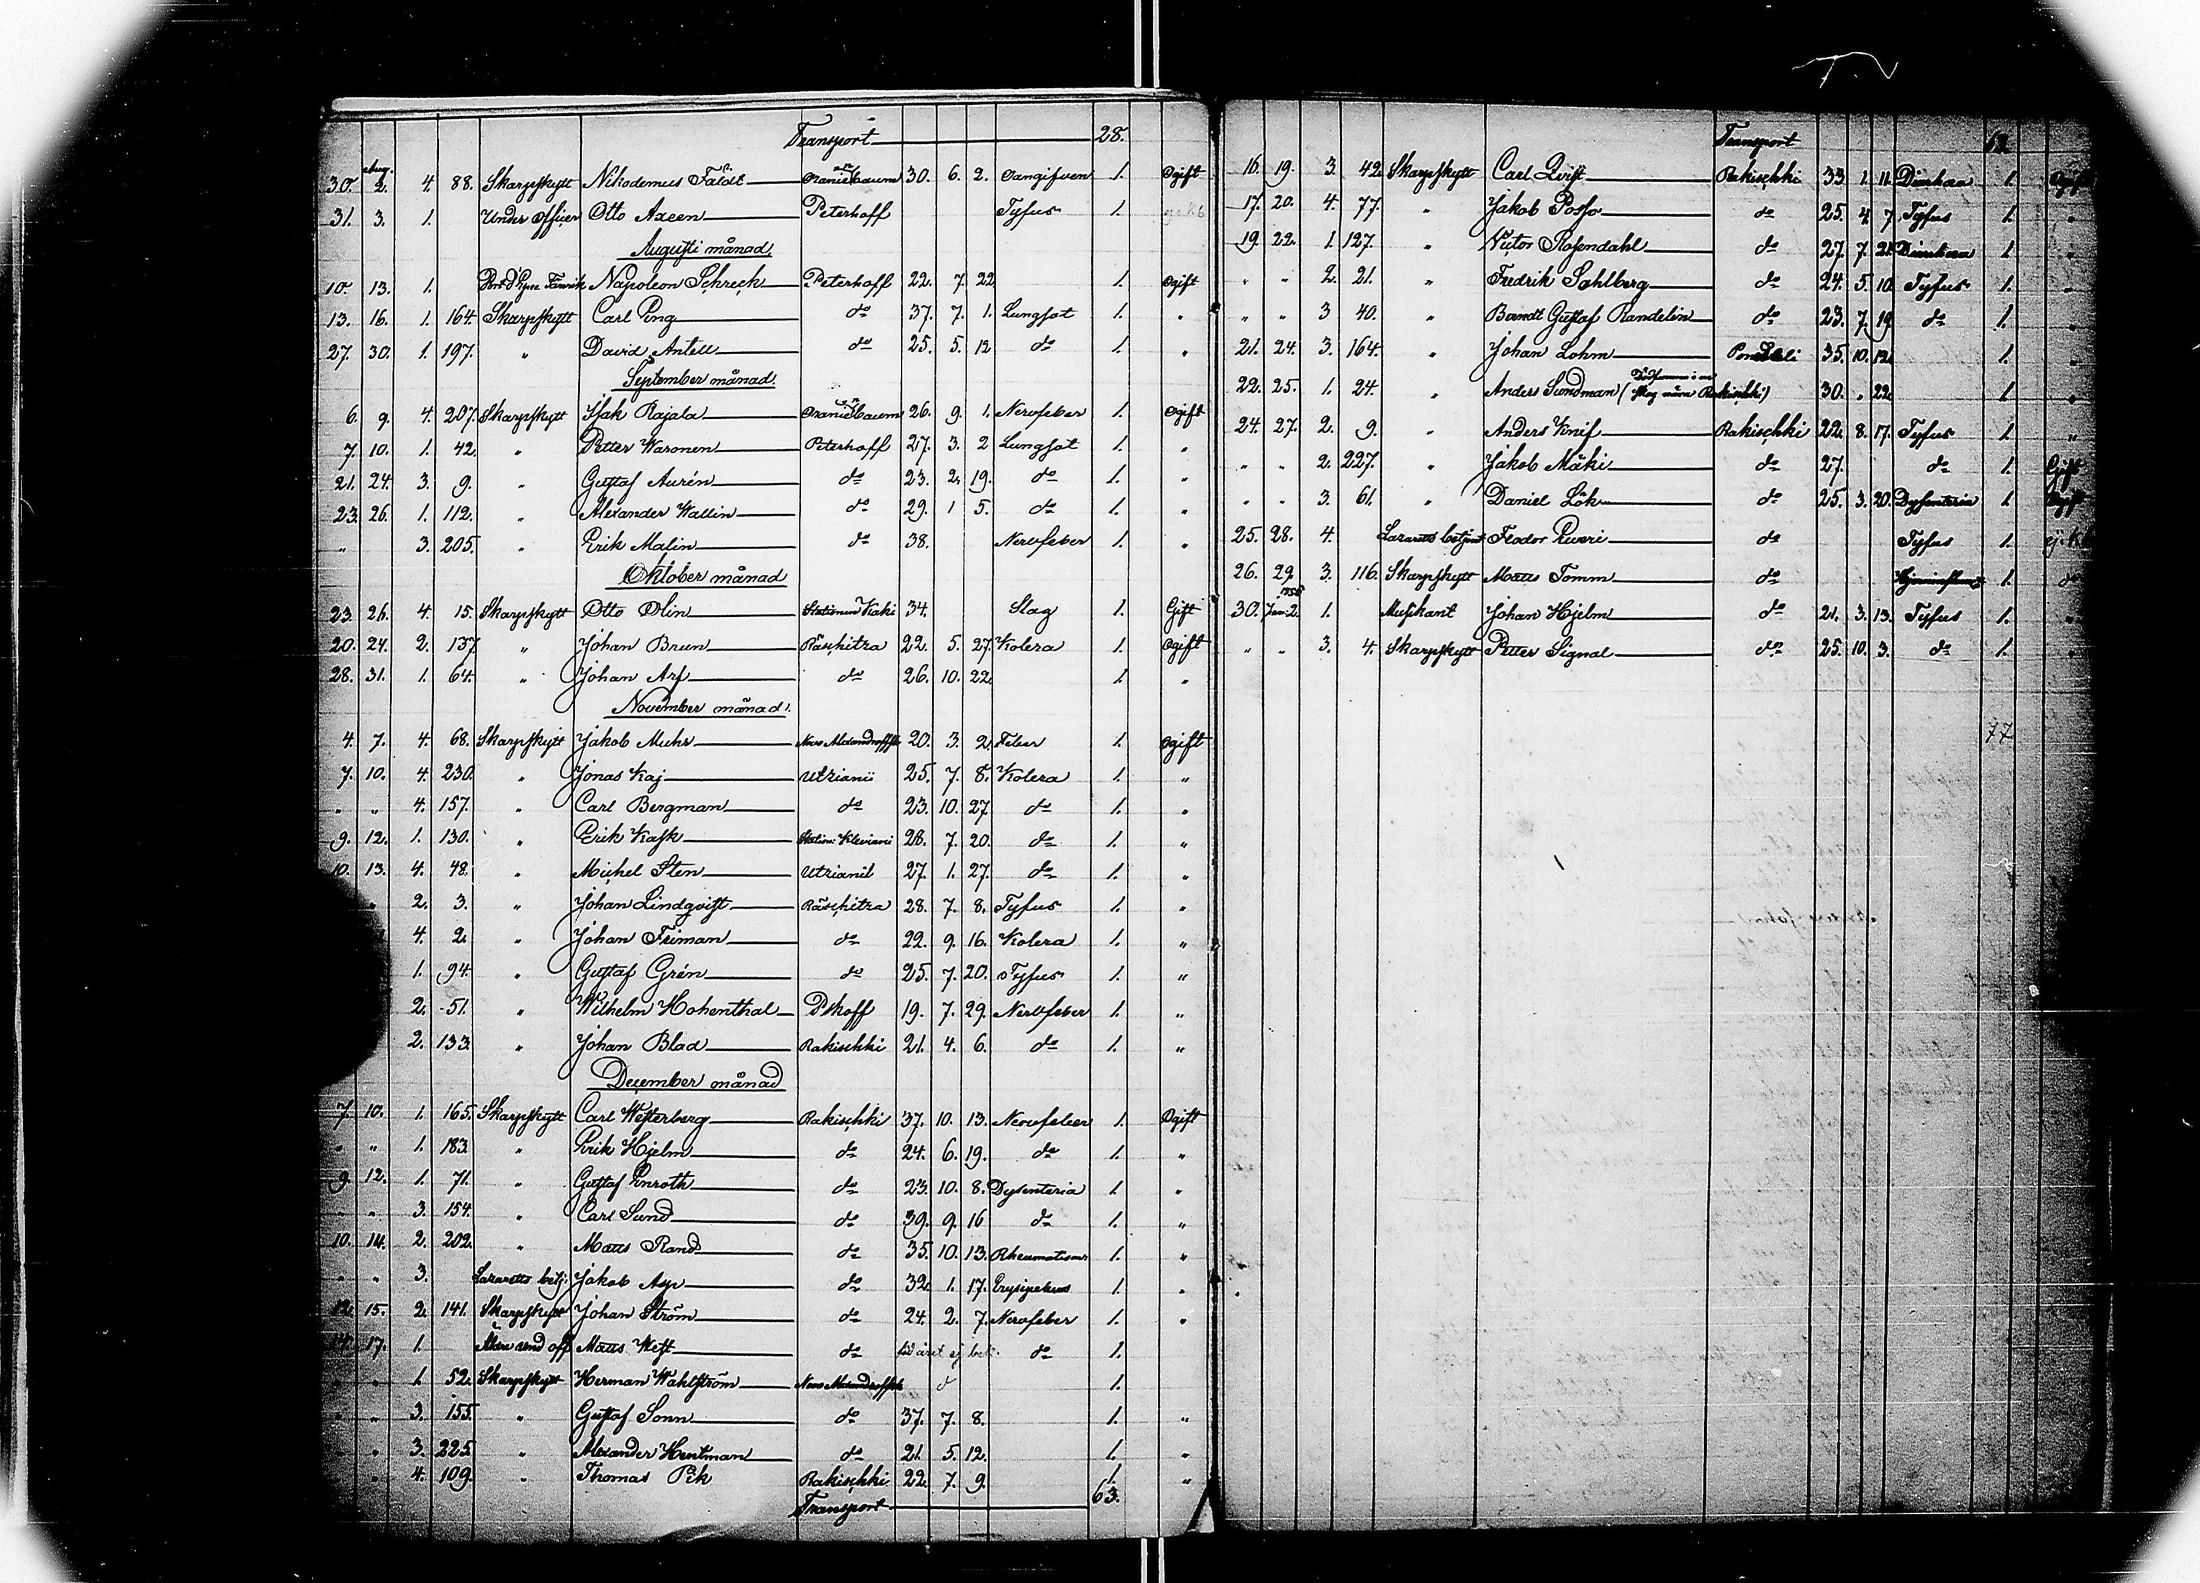 T. V
Transport 28.
30. Aug. 2. 4. 88. Skarpskytt Nikodemus Fäldt Oranienbaum 30. 6. 2. Oangifven 1. Ogift
31. 3. 1. Under officer Otto Axeen Peterhoff Tyfus 1.
Augusti månad.
10. 13. 1. Fänrik Napoleon Schreck Peterhoff 22. 7. 22 1. Ogift
13. 16. 1. 164. Skarpskytt Carl Ring do 37. 7. 1. Lungsot 1. "
27. 30. 1. 197. " David Antell do 25. 5. 12 do 1. "
September månad.
6. 9. 4. 207. Skarpskytt Isak Rajala Oranienbaum 26. 9. 1. Nervfeber 1. Ogift
7. 10. 1. 42. " Petter Waronen Peterhoff 27. 3. 2 Lungsot 1. "
21. 24. 3. 9. " Gustaf Aurén do 23. 2. 19. do 1. "
23. 26. 1. 112. " Alexander Wallin do 29. 1 5. do 1. "
" 3. 205. " Erik Malin do 38. Nervfeber 1. "
Oktober månad
23. 26. 4. 15. Skarpskytt Otto Olin Stationen Kaki 34. Slag 1. Gift
20. 24. 2. 137 " Johan Brun Räschitza 22. 5. 27. Kolera 1. Ogift
28. 31. 1. 64. " Johan Arf do 26. 10. 22. 1. "
November månad.
4. 7. 4. 68. Skarpskytt Jakob Muhr Novo Alexandroffsk 20. 3. 2. Feber 1. Ogift
7. 10. 4. 230. " Jonas Kaj Utzianii 25. 7. 8. Kolera 1. "
" " 4. 157. " Carl Bergman do 23. 10. 27 do 1. "
9. 12. 1. 130. " Erik Kask Station: Kleviani 28. 7. 20. do 1. "
10. 13. 4. 48. " Michel Sten Utzianii 27. 1. 27. do 1. "
" 2. 3. " Johan Lindqvist Räschitza 28. 7. 8. Tyfus 1. "
4. 2. " Johan Friman do 22. 9. 16. Kolera 1. "
1. 94. " Gustaf Grén do 25. 7. 20. Tyfus 1. "
2. 51. " Wilhelm Hohenthal Pskoff 19. 7. 29. Nervfeber 1. "
2. 133. " Johan Blad Rakischki 21. 4. 6. do 1. "
December månad
7. 10. 1. 165. Skarpskytt Carl Westerberg Rakischki 37. 10. 13. Nervfeber 1. Ogift
" " 1. 183. " Erik Hjelm do 24. 6. 19. do 1. "
9. 12. 1. 71. " Gustaf Enroth do 23. 10. 8. Dysenteria 1. "
" " 3. 154. " Carl Sund do 39. 9. 16 do 1. "
10. 14. 2. 202. " Matts Rand do 35. 10. 13. Rheumatismr 1. "
" " 3. Lazaretts betj: Jakob Asp do 32. 1. 17. Erysipelas 1. "
12. 15. 2. 141. Skarpskytt Johan Ström do 24. 2. 7. Nervfeber 1. "
14. 17. 1. Äldre und off Matts West do föd året ej bek: do 1.
" " 1. 52. Skarpskytt Herman Wahlström Novo Alexandroffsk 1.
" " 3. 155. " Gustaf Sonn do 37. 7. 8. 1. "
" " 3. 225. " Alexander Hentman do 21. 5. 12. 1. "
" 4. 109. " Thomas Pik Rakischki 22. 7. 9. 1. "
Transport 63.
Transport 63.
16. 19. 3. 42. Skarpskytt Carl Qvist Rakischki 33. 1. 11. Diarrhaa 1. Ogift
17. 20. 4. 77. " Jakob Posso do 25. 4. 7. Tyfus 1. "
19. 22. 1. 127. " Victor Rosendahl do 27. 7. 21. Diarrhaa 1. "
" " 2. 21. " Fredrik Sahlberg do 24. 5. 10. Tyfus 1. "
" " 3 40. " Berndt Gustaf Randelin do 23. 7. 19. do 1. "
21. 24. 3. 164. " Johan Lohm 35. 10. 12. 1. "
22. 25. 1. 24. " Anders Sundman ( skog nära Rakischki) 30. " 22. 1. "
24. 27. 2. 9. " Anders Knif Rakischki 22. 8. 17. Tyfus 1. "
" " 2. 227. " Jakob Mäki do 27. do 1. Gift
" " 3. 61. " Daniel Lök do 25. 3. 20. Dysenteria 1. Ogift
25. 28. 4. Lazaretts betjent Feodor Ruveri do Tyfus 1. ej. k
26. 29. 3. 116. Skarpskytt Matts Tomm do 1. do
30. 1855 Jan: 2. 1. Musikant Johan Hjelm do 21. 3. 13. Tyfus 1. "
" " 3. 4. Skarpskytt Petter Signal do 25. 10. 3. do 1. "
77